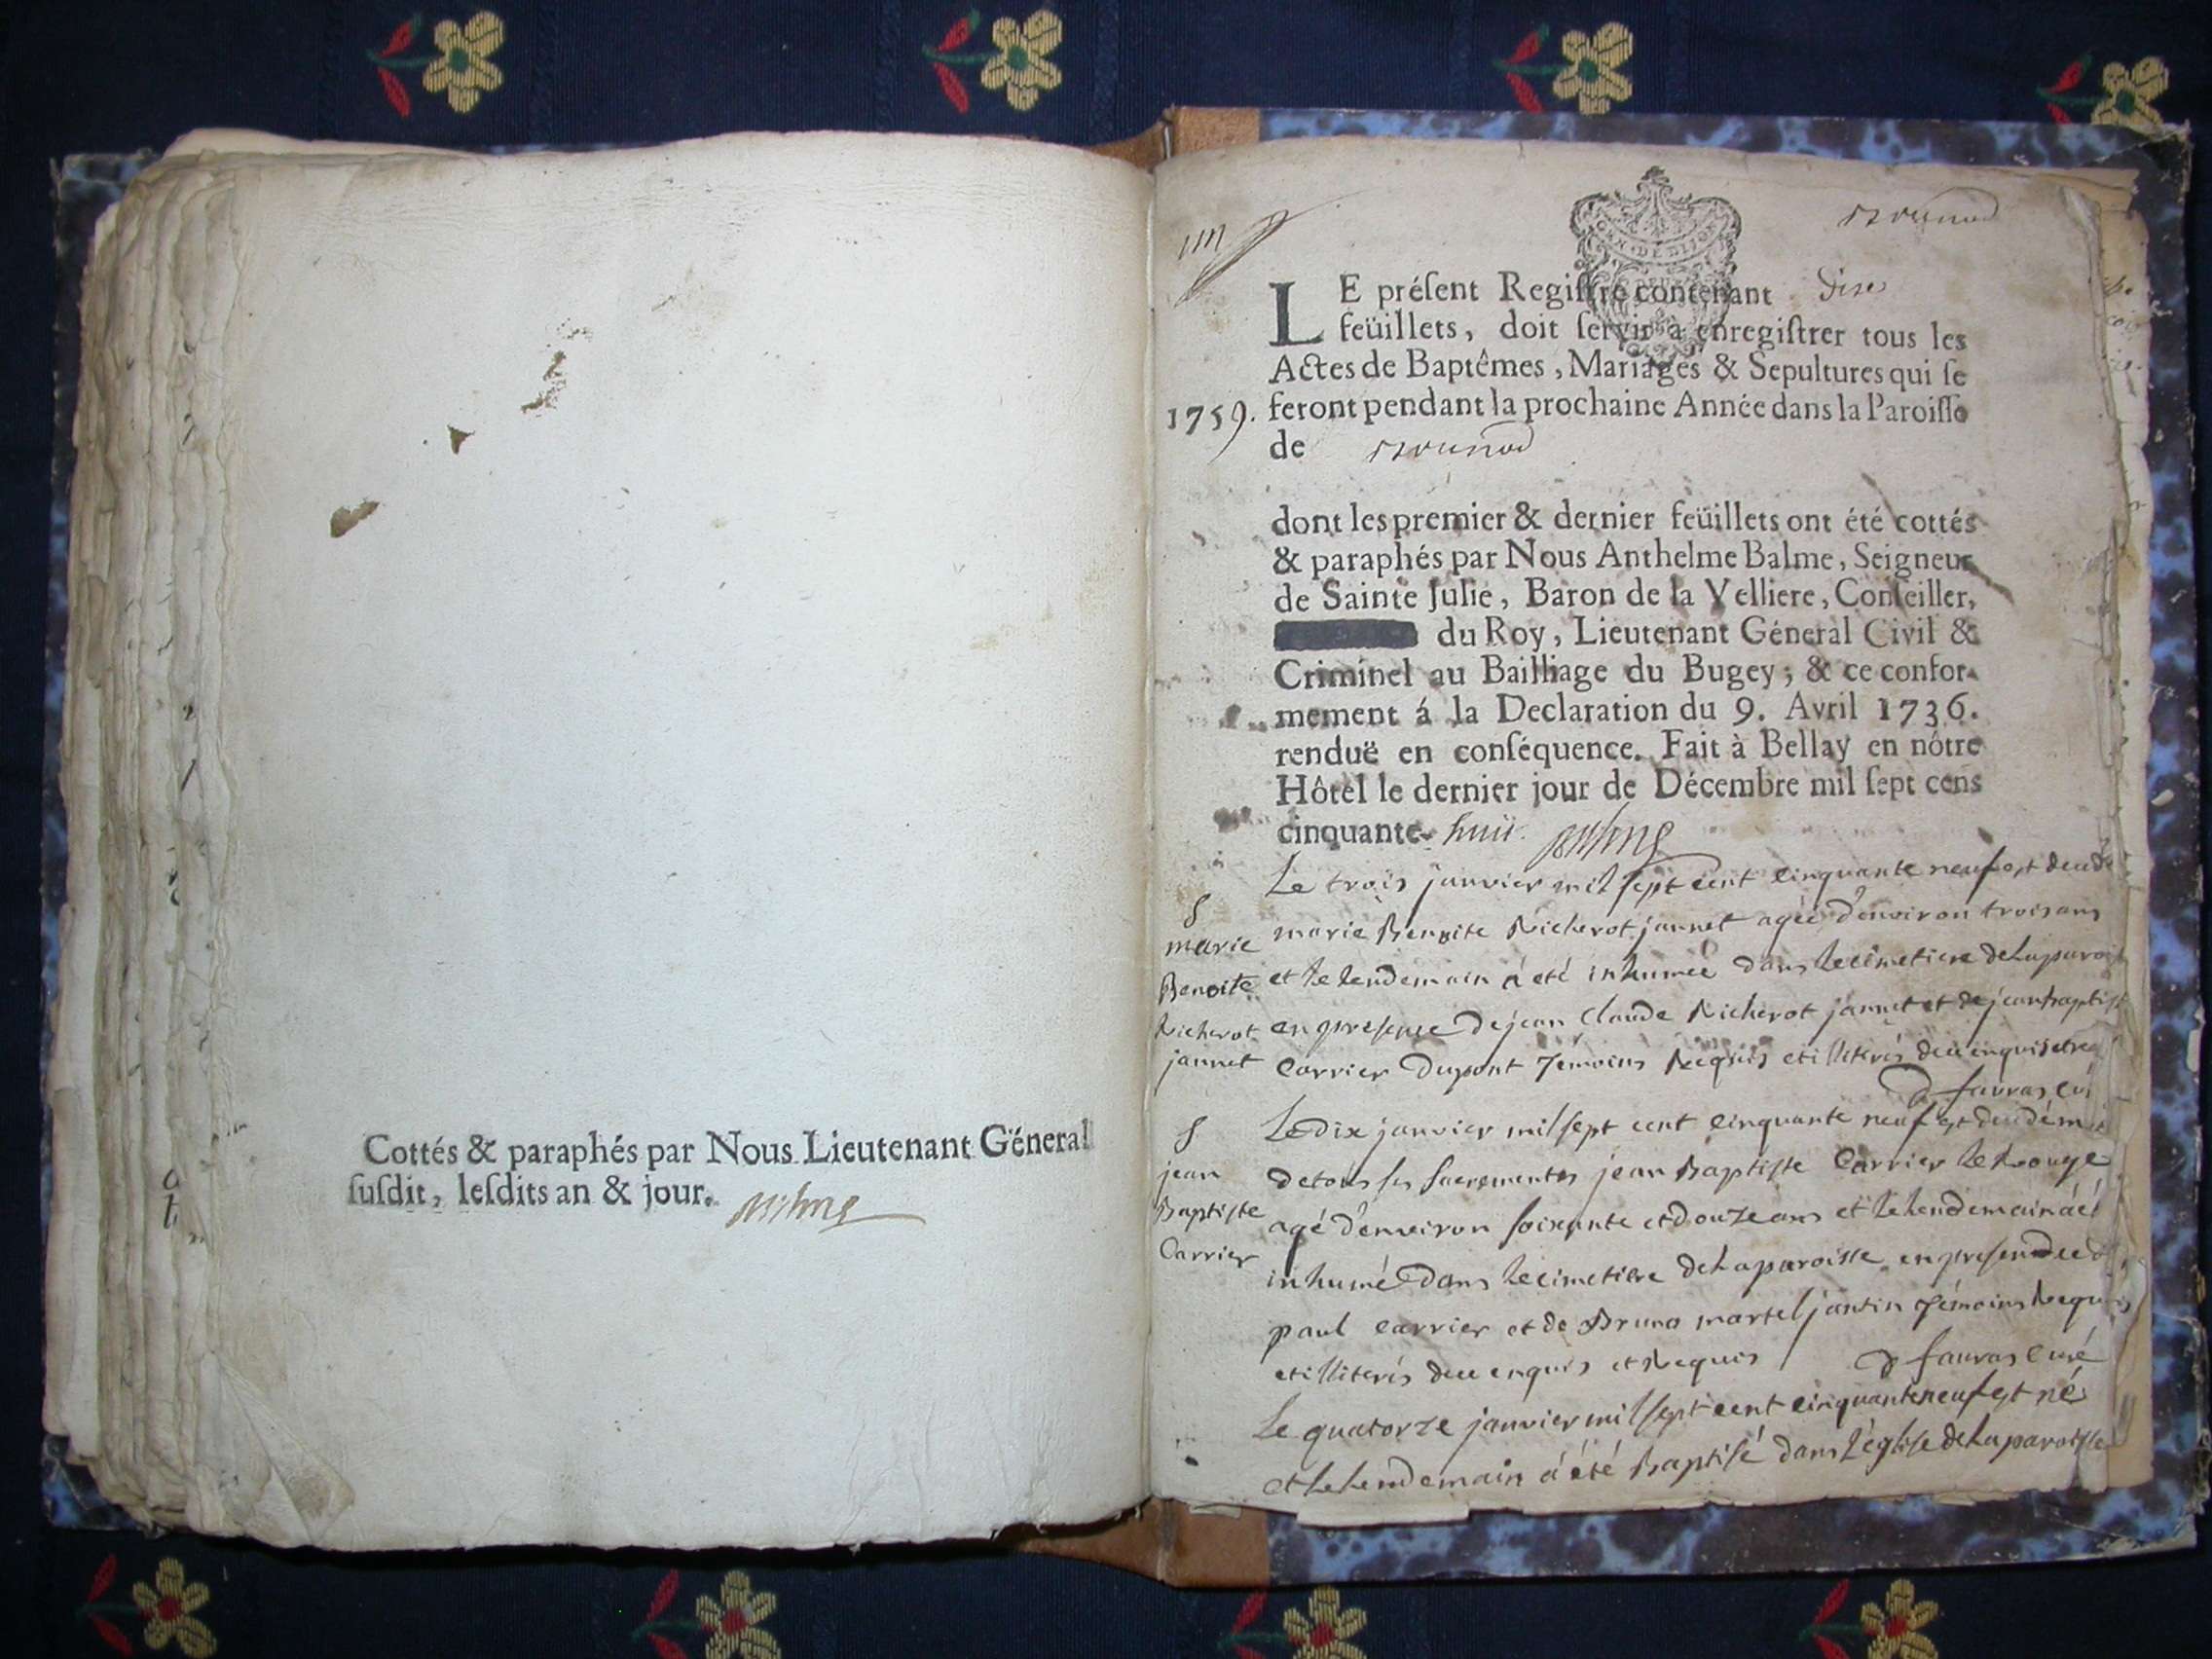 Cottés & paraphés par Nous Lieutenant Géneral
ſuſdit, leſdits an & jour.
GEN. DE DIJON
Brenod
LE préſent Regiſtre contenant dixe
feüillets, doit ſervir a enregiſtrer tous les
Actes de Baptêmes, Mariages & Sepultures qui ſe
1759. feront pendant la prochaine Année dans la Paroiſſe
de Brenod
dont les premier & dernier feüillets ont été cottés
& paraphés par Nous Anthelme Balme, Seigneur
de Sainte Julie, Baron de la Velliere, Conſeiller,
du Roy, Lieutenant Géneral Civil &
Criminel au Bailliage du Bugey; & ce confor-
mement á la Declaration du 9. Avril 1736.
renduë en conſéquence. Fait à Bellay en nôtre
Hôtel le dernier jour de Décembre mil ſept cens
cinquante-huit. Balme
Le trois janvier mil sept cent cinquante neuf est
S
marie
Benoite
Richerot
jannet
marie Benoite Richerot jannet agée d'environ trois ans
et le lendemain á eté inhumée dans le cimetiere de la paroisse
en presence de jean Claude Richerot jannet et de jean baptiste
Carrier Dupont Témoins Requis et illiterés
favras curé
S
jean
Baptiste
Carrier
Le dix janvier mil sept cent cinquante neuf est
de tous ses sacrements jean Baptiste Carrier le Rouge
agé d'environ soixante et douze ans et le lendemain á eté
inhumé dans le cimetiere de la paroisse en presence de
paul carrier et de Bruno martel jantin Témoins Requis
et illiterés de ce enquis et Requis favras curé
Le quatorze janvier mil sept cent cinquante neuf est né
et le lendemain á été Baptisé dans l'église de la paroisse